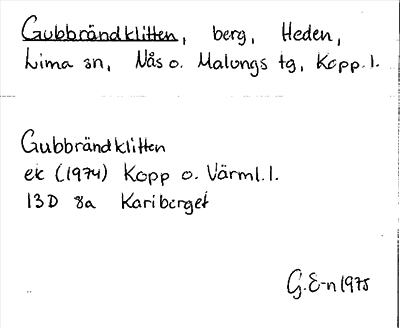 Gubbrändklitten, berg, Heden,
Lima sn, Nås o. Malungs tg, Kopp. l.
Gubbrändklitten
ek (1974) Kopp o. Värml. l.
13D 8a Kariberget
G. E-n 1975